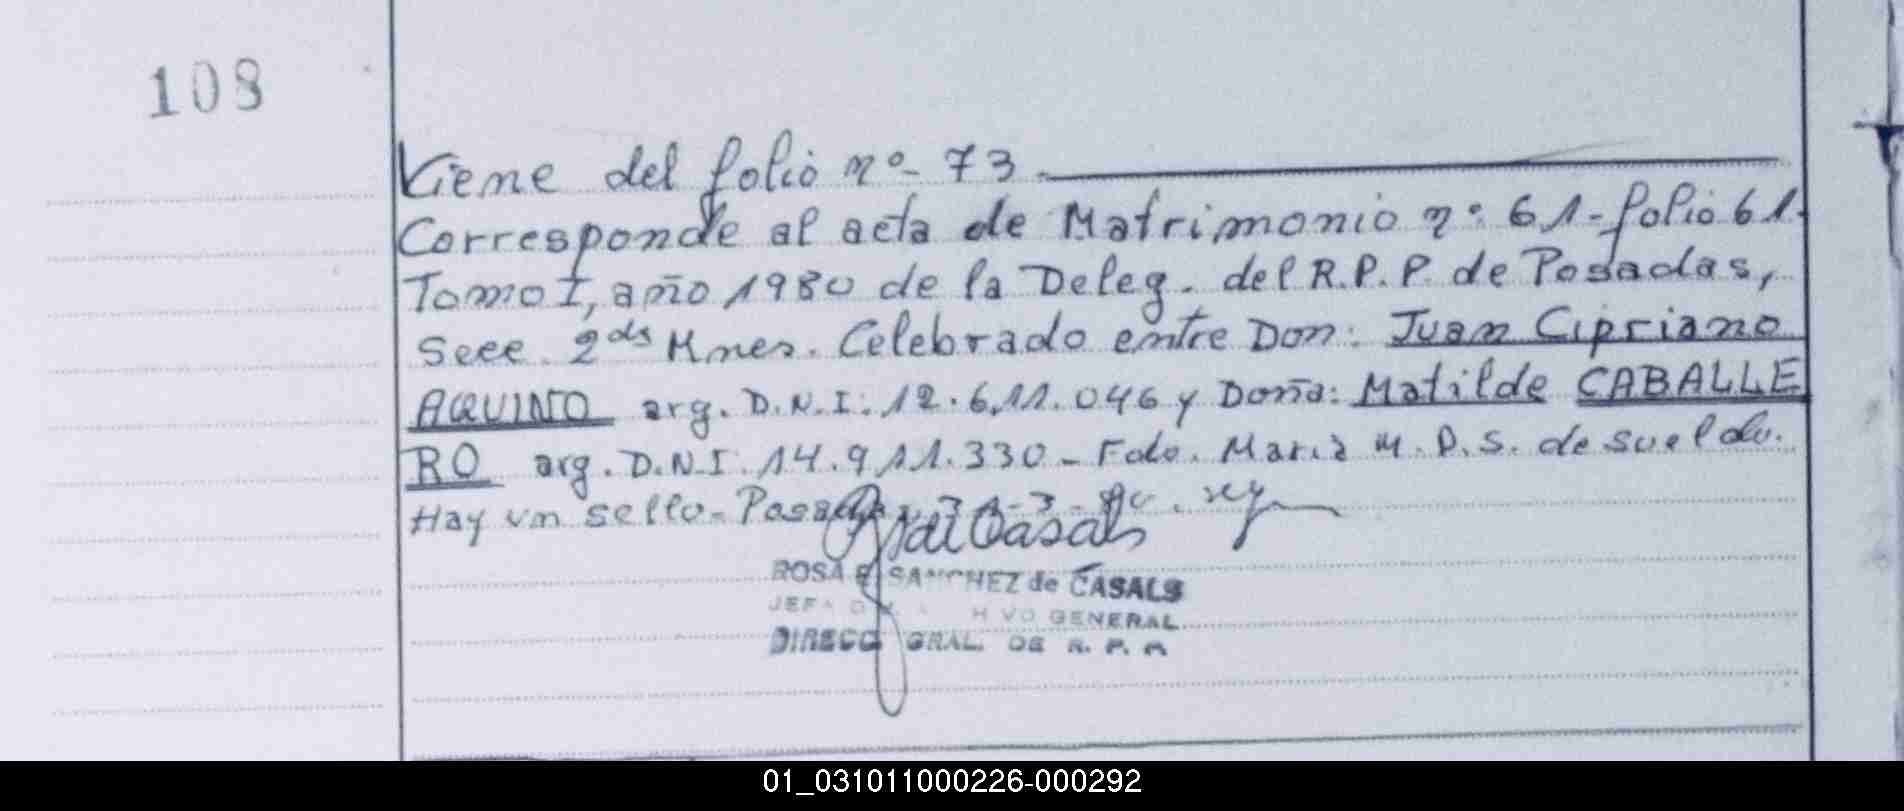 108
Viene del folio nº- 73.
Corresponde al acta de Matrimonio nº 61- folio 61.
Tomo I, año 1980 de la Deleg. del R.P.P. de Posadas,
Secc. 2das Mnes. Celebrado entre Don: Juan Cipriano
AQUINO arg. D.N.I. 12.611.046 y Doña: Matilde CABALLE
RO arg. D.N.I. 14.911.330 - Fdo. María M. D. S. de Sueldo.
Hay un sello - Posadas, 31-3-80.
ROSA E SANCHEZ de CASALS
JEFA GENERAL
DIRECC GRAL. DE R. P. P.
01_031011000226-000292